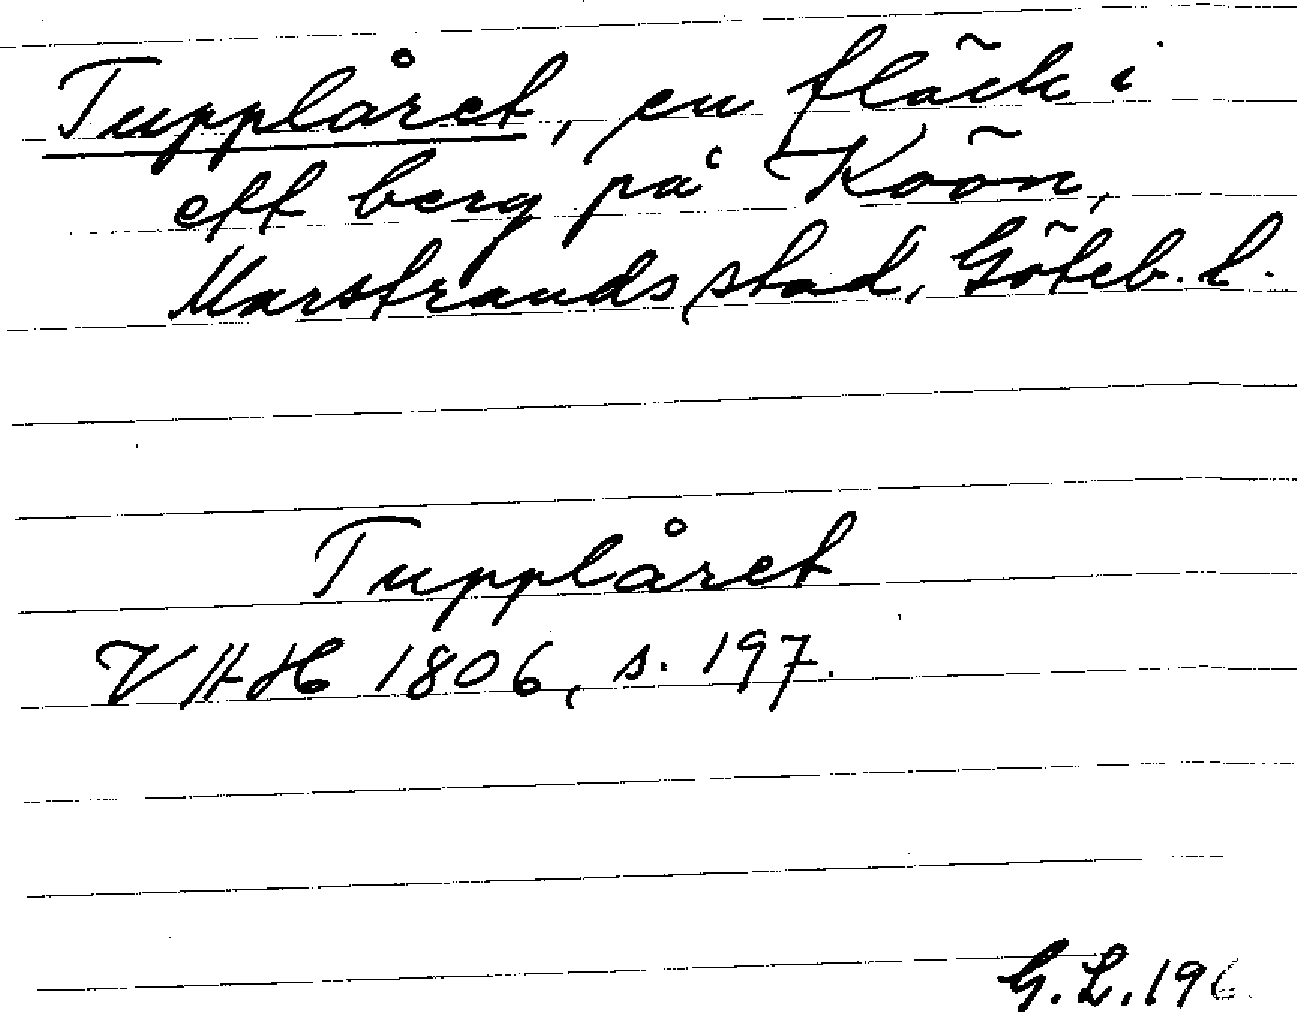 Tupplåret, en fläck i
ett berg på Koön,
Marstrands stad, Göteb. l.
Tupplåret
VHH 1806, s. 197.
G. L. 196